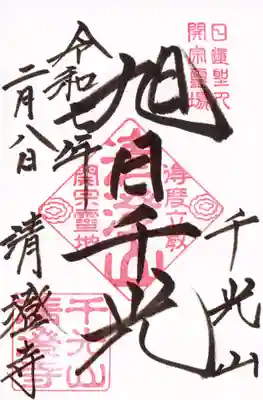 千光山
日蓮聖人
開宗霊場
旭日千光
清澄山
得度
開宗霊地
令和七年
二月八日
清澄寺
千光山
清澄寺